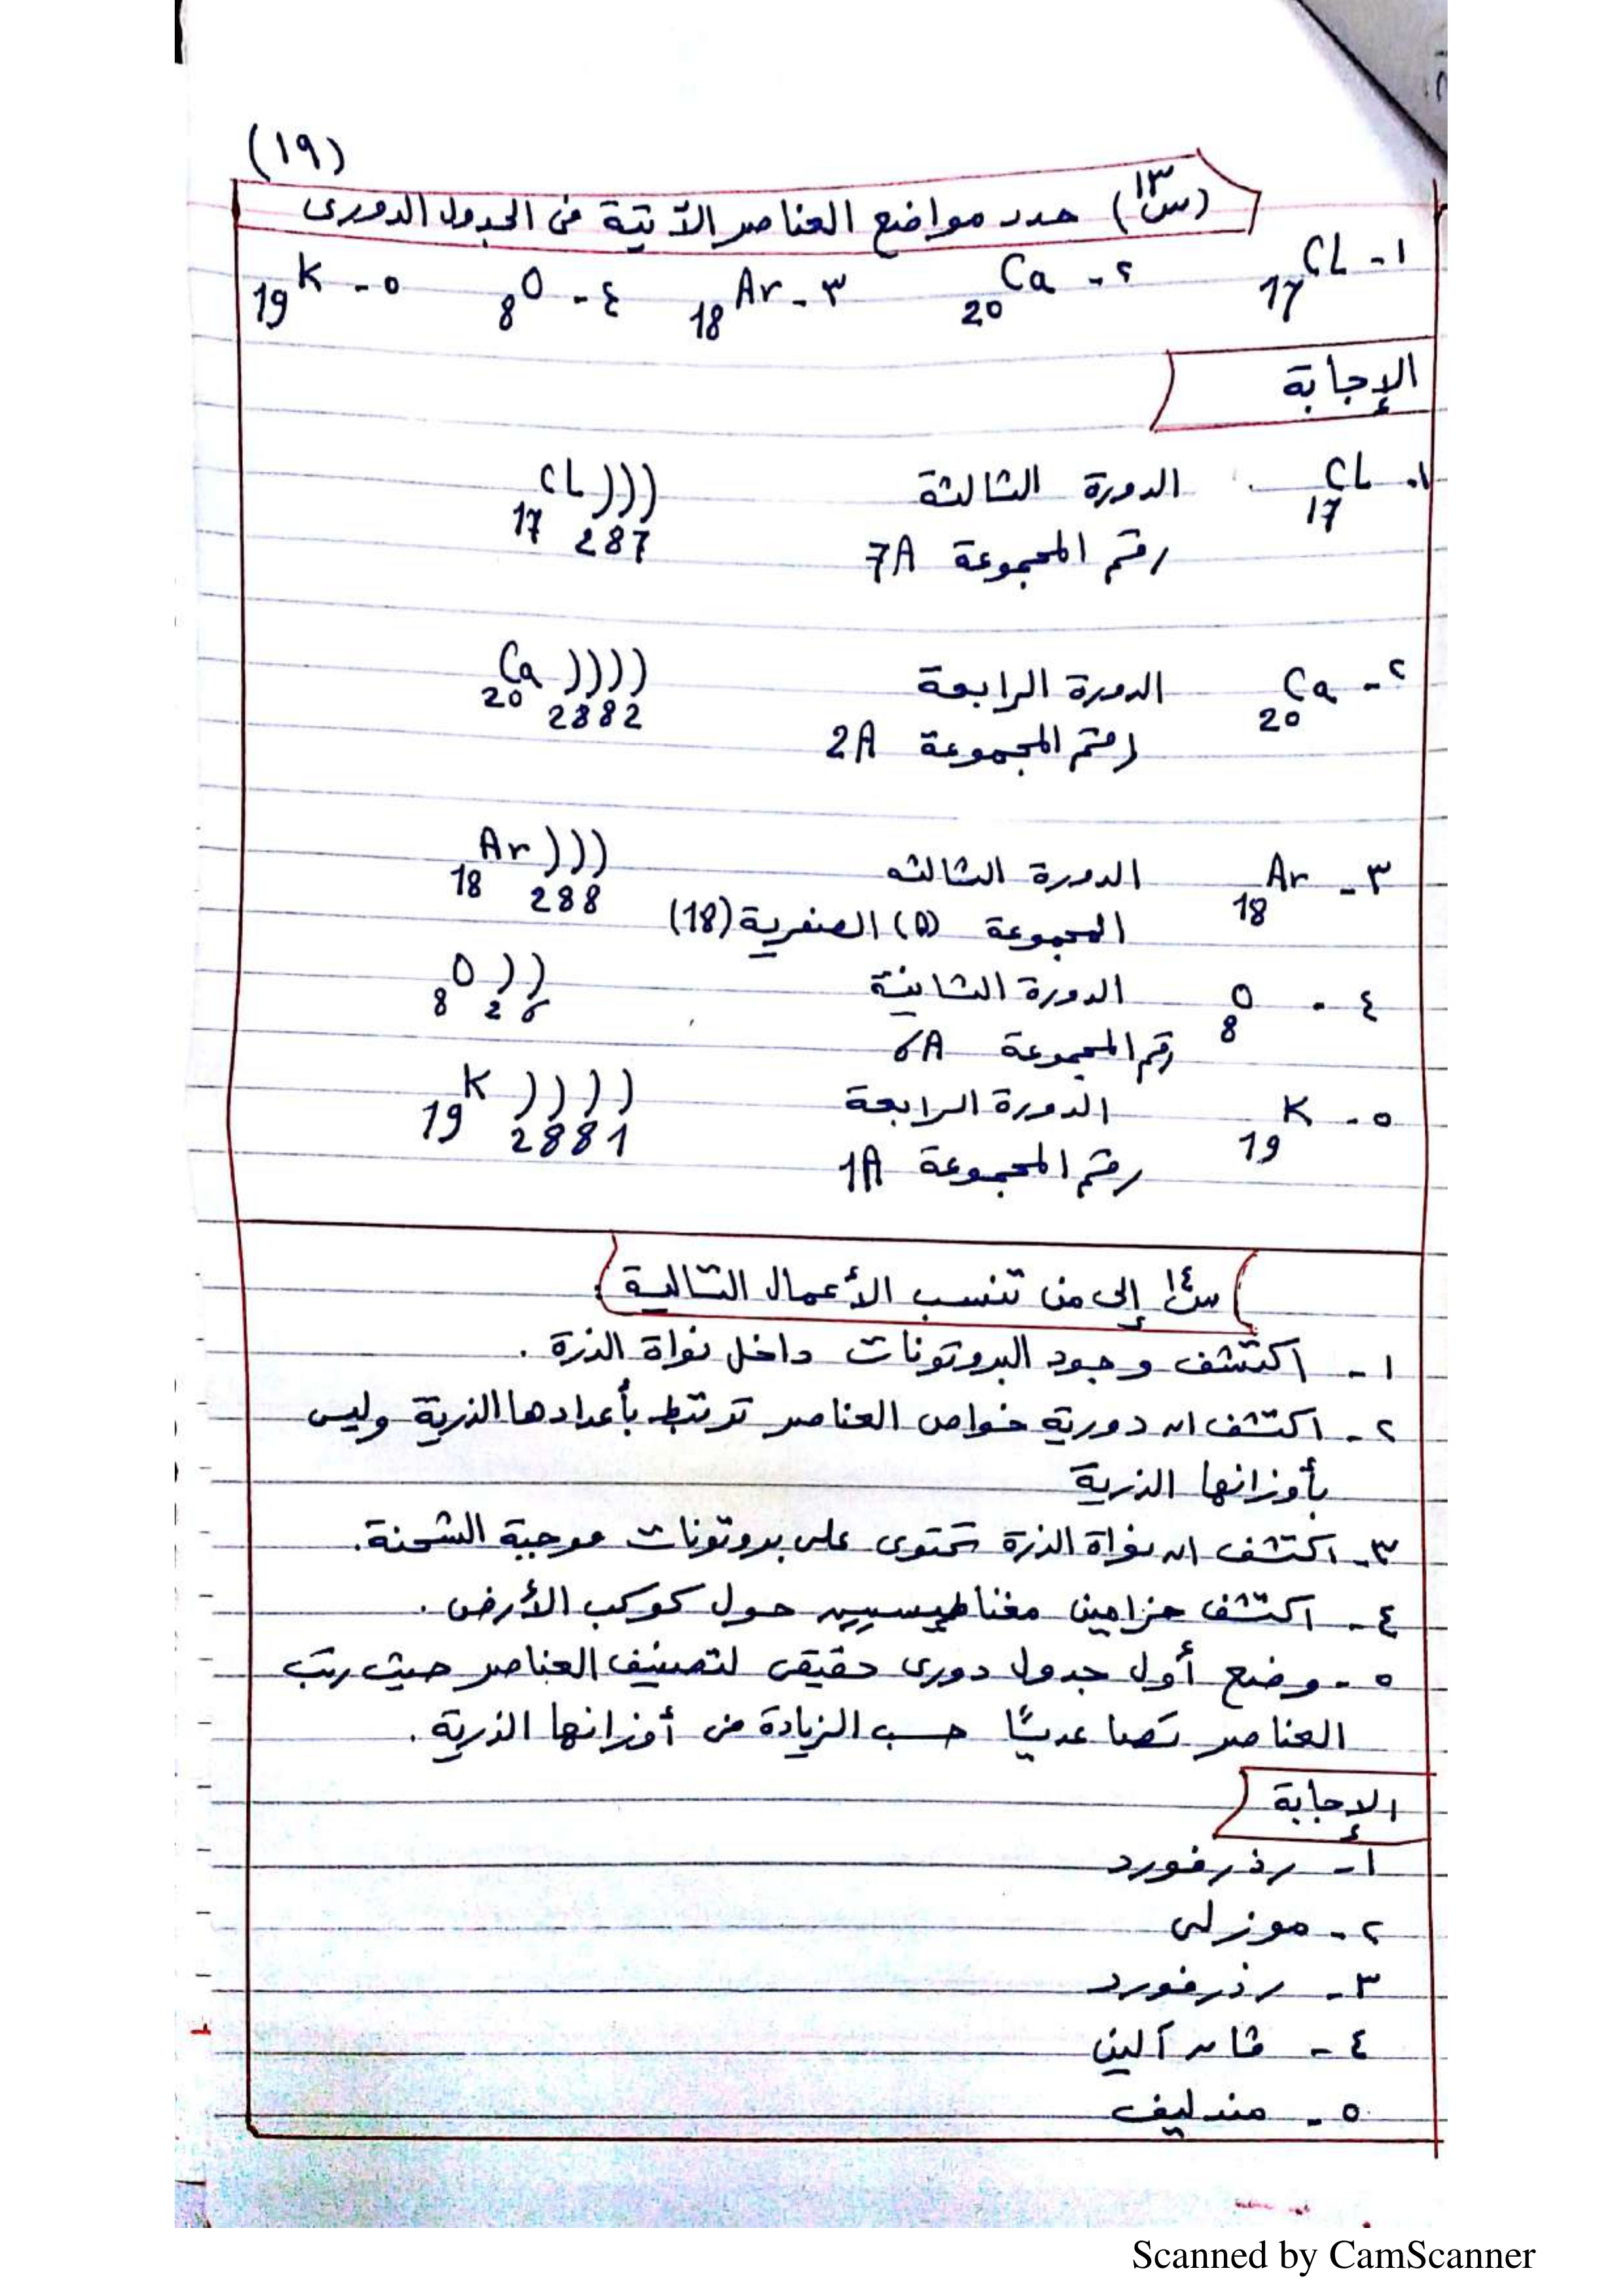 (١٩)
(س١٣) حدد مواضع العناصر الآتية فى الجدول الدورى
١- 17CL ٢- 20Ca ٣- 18Ar ٤- 8O ٥- 19K
الإجابة
١- 17CL الدورة الثالثة 17CL )))
رقم المجموعة 7A 2 8 7
٢- 20Ca الدورة الرابعة 20Ca ))))
رقم المجموعة 2A 2 8 8 2
٣- 18Ar الدورة الثالثه 18Ar )))
المجموعة (0) الصفرية (18) 2 8 8
٤- 8O الدورة الثانية 8O ))
رقم المجموعة 6A 2 6
٥- 19K الدورة الرابعة 19K ))))
رقم المجموعة 1A 2 8 8 1
س١٤ إلى من تنسب الأعمال التالية:
١- اكتشف وجود البروتونات داخل نواة الذرة.
٢- اكتشف ان دورية خواص العناصر ترتبط بأعدادها الذرية وليس
بأوزانها الذرية
٣- اكتشف ان نواة الذرة تحتوى على بروتونات موجبة الشحنة.
٤- اكتشف حزامين مغناطيسيين حول كوكب الأرض.
٥- وضع أول جدول دورى حقيقى لتصنيف العناصر حيث رتب
العناصر تصاعديًا حسب الزيادة فى أوزانها الذرية.
الإجابة
١- رذرفورد
٢- موزلى
٣- رذرفورد
٤- فان آلين
٥- مندليف
Scanned by CamScanner